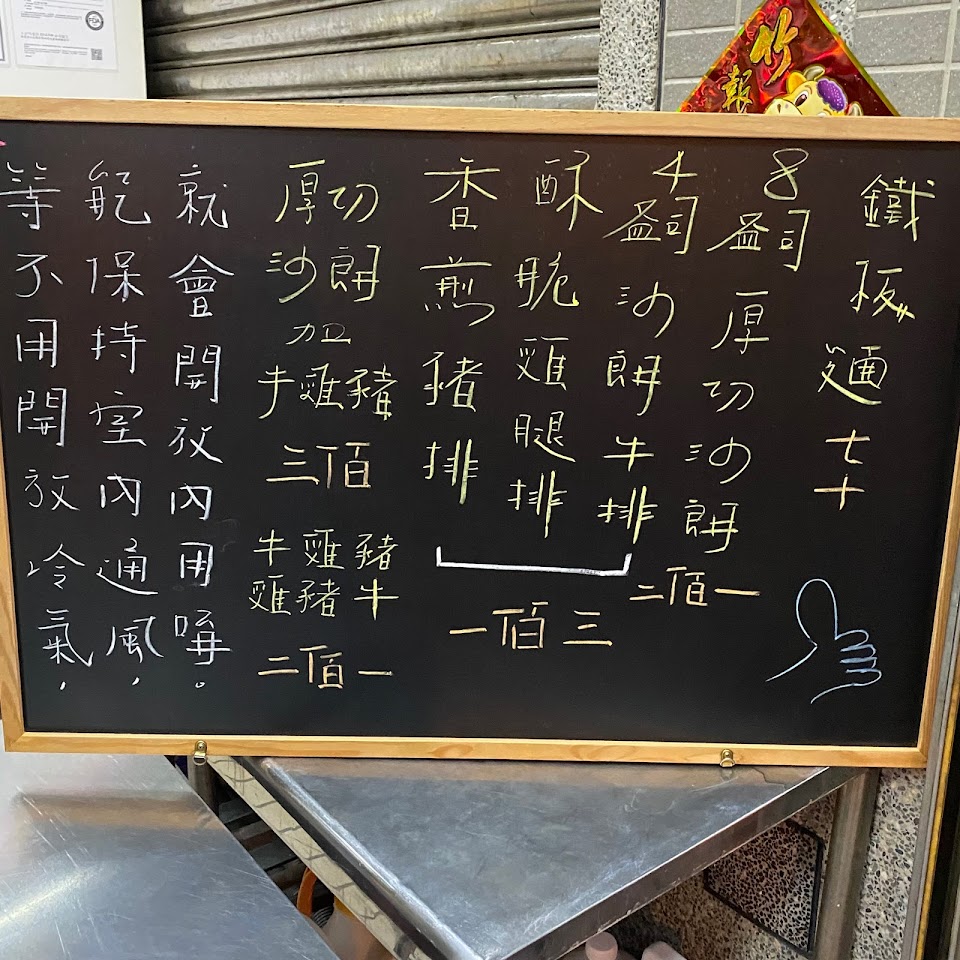 竹報
鐵板麵七十
8盎司厚切沙朗
二佰一
4盎司沙朗牛排
酥脆雞腿排
香煎豬排
一佰三
厚切
沙朗
加
牛雞豬
三佰
牛雞豬
雞豬牛
二佰一
等不用開放冷氣，
能保持室內通風，
就會開放內用嗨。